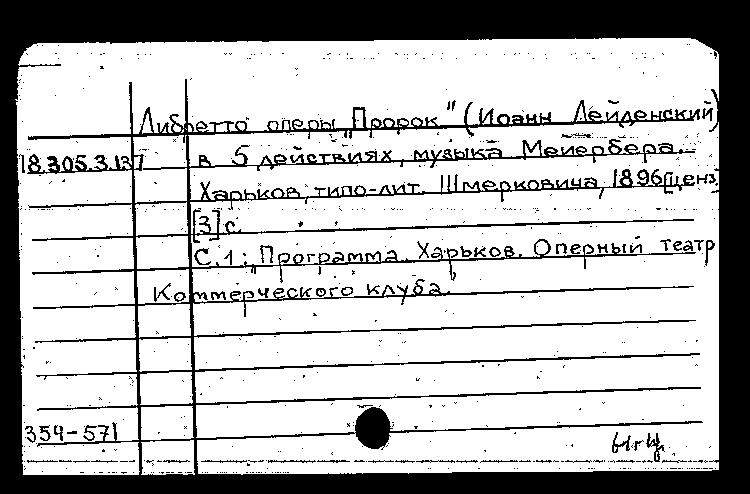 Либретто оперы „Пророк" (Иоанн Лейденский)
18.305.3.137 в 5 действиях, музыка Мейербера.
Харьков, типо-лит. Шмерковича, 1896 [ценз]
[3] с.
С.1: „Программа. Харьков. Оперный театр
Коммерческого клуба.
354-571